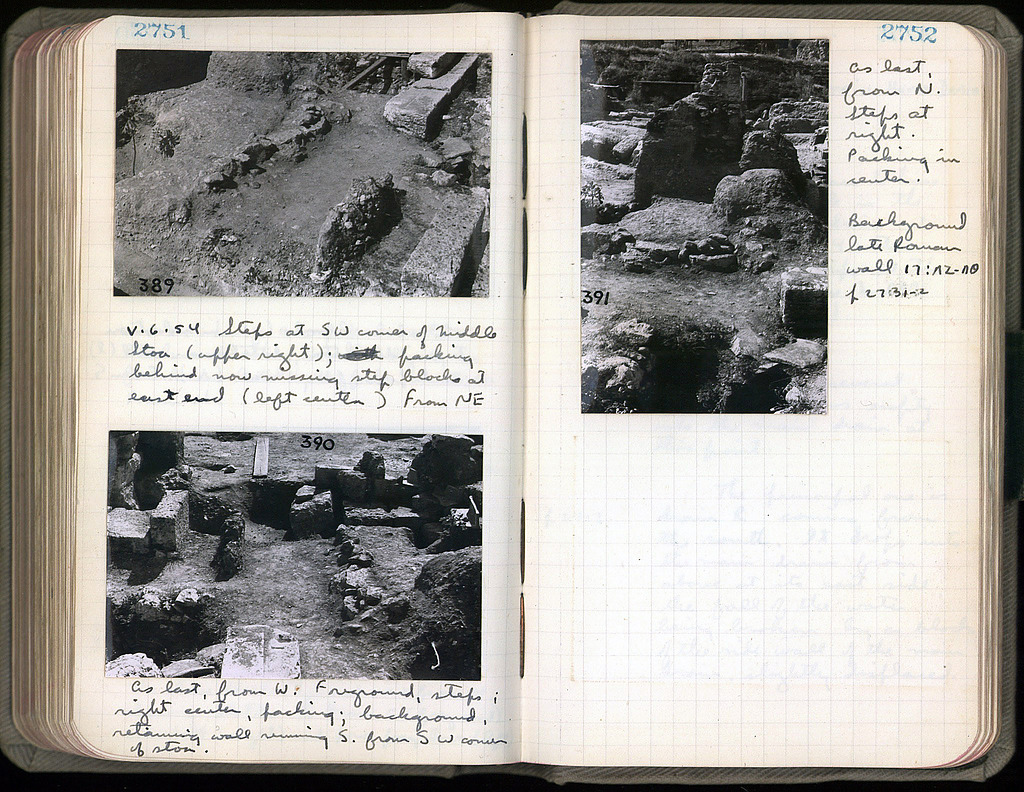 2751
389
V.6.54 Steps at SW corner of Middle
Stoa (upper right); packing
behind now missing step blocks at
east end (left center) From NE
390
As last, from W. Foreground, steps;
right center, packing; background,
retaining wall running S. from SW corner
of stoa.
2752
391
as last,
from N.
Steps at
right.
Packing in
center.
Background
late Roman
wall 17:ΛΖ-ΛΘ
p 2731-2